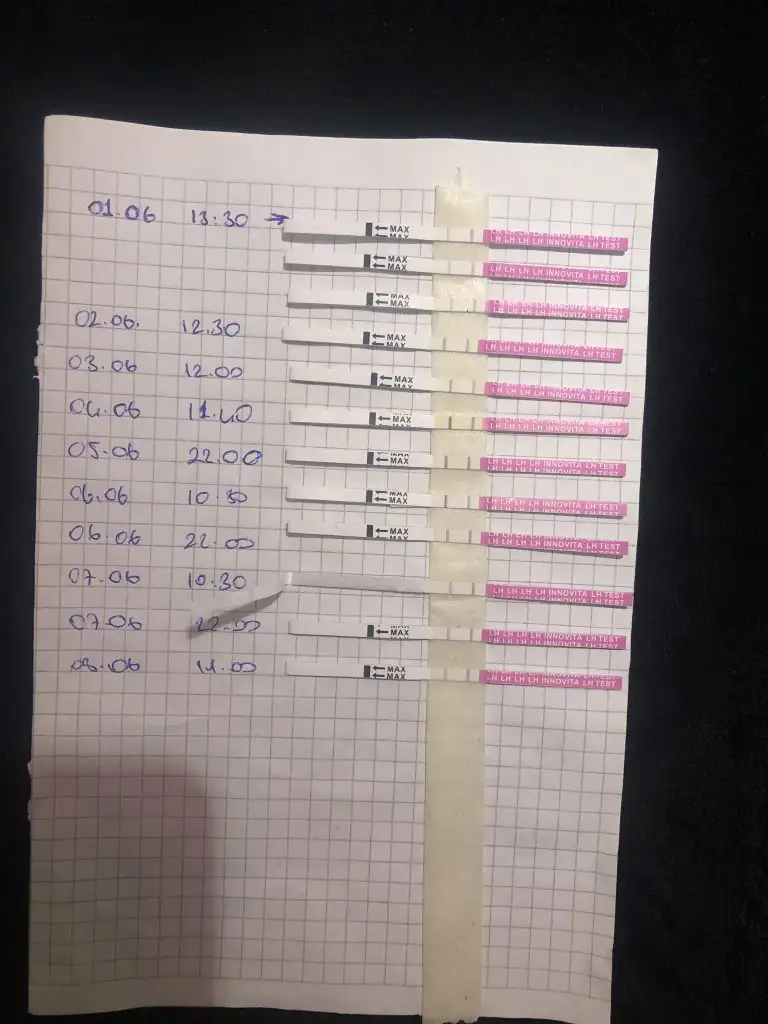 01.06 13:30 →
← MAX LH LH LH LH INNOVITA LH TEST
← MAX LH LH LH LH INNOVITA LH TEST
← MAX LH LH LH LH INNOVITA LH TEST
02.06. 12.30 ← MAX LH LH LH LH INNOVITA LH TEST
03.06 12.00 ← MAX LH LH LH LH INNOVITA LH TEST
04.06 11.40 ← MAX LH LH LH LH INNOVITA LH TEST
05.06 22.00 ← MAX LH LH LH LH INNOVITA LH TEST
06.06 10.30 ← MAX LH LH LH LH INNOVITA LH TEST
06.06 22.00 ← MAX LH LH LH LH INNOVITA LH TEST
07.06 10:30 LH LH LH LH INNOVITA LH TEST
07.06 22.00 ← MAX LH LH LH LH INNOVITA LH TEST
08.06 11.00 ← MAX LH LH LH LH INNOVITA LH TEST